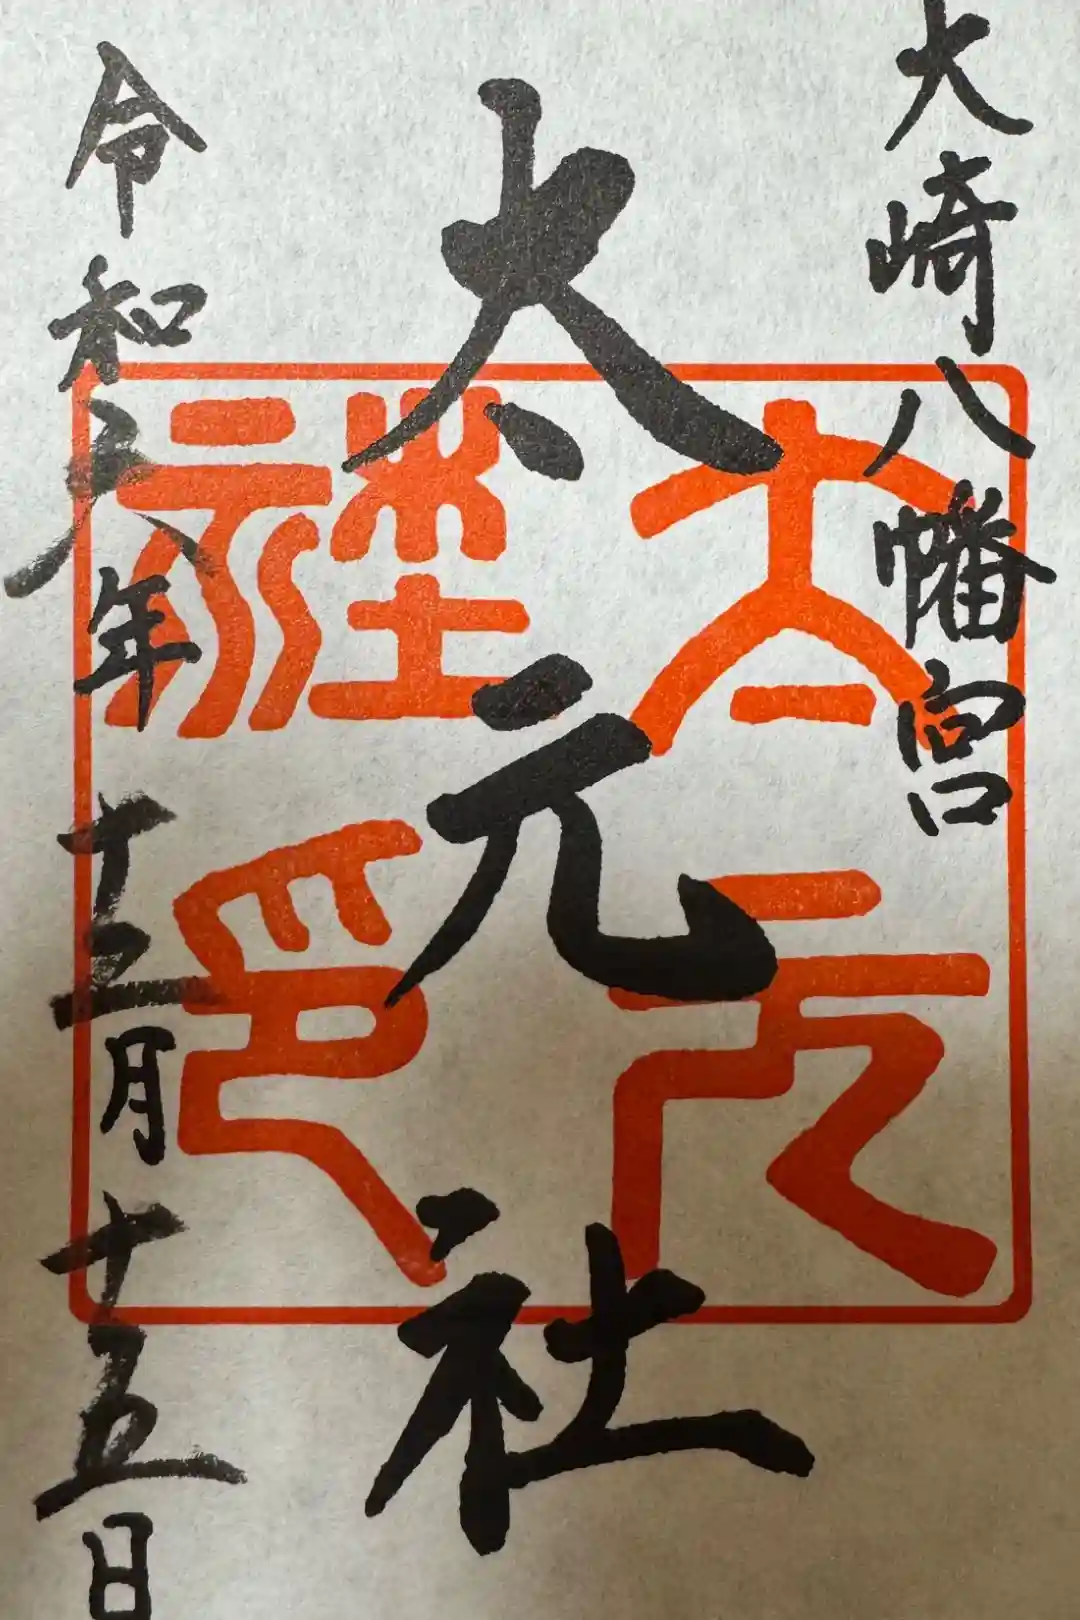 大崎八幡宮
太元社
令和六年十二月十五日
太元社印